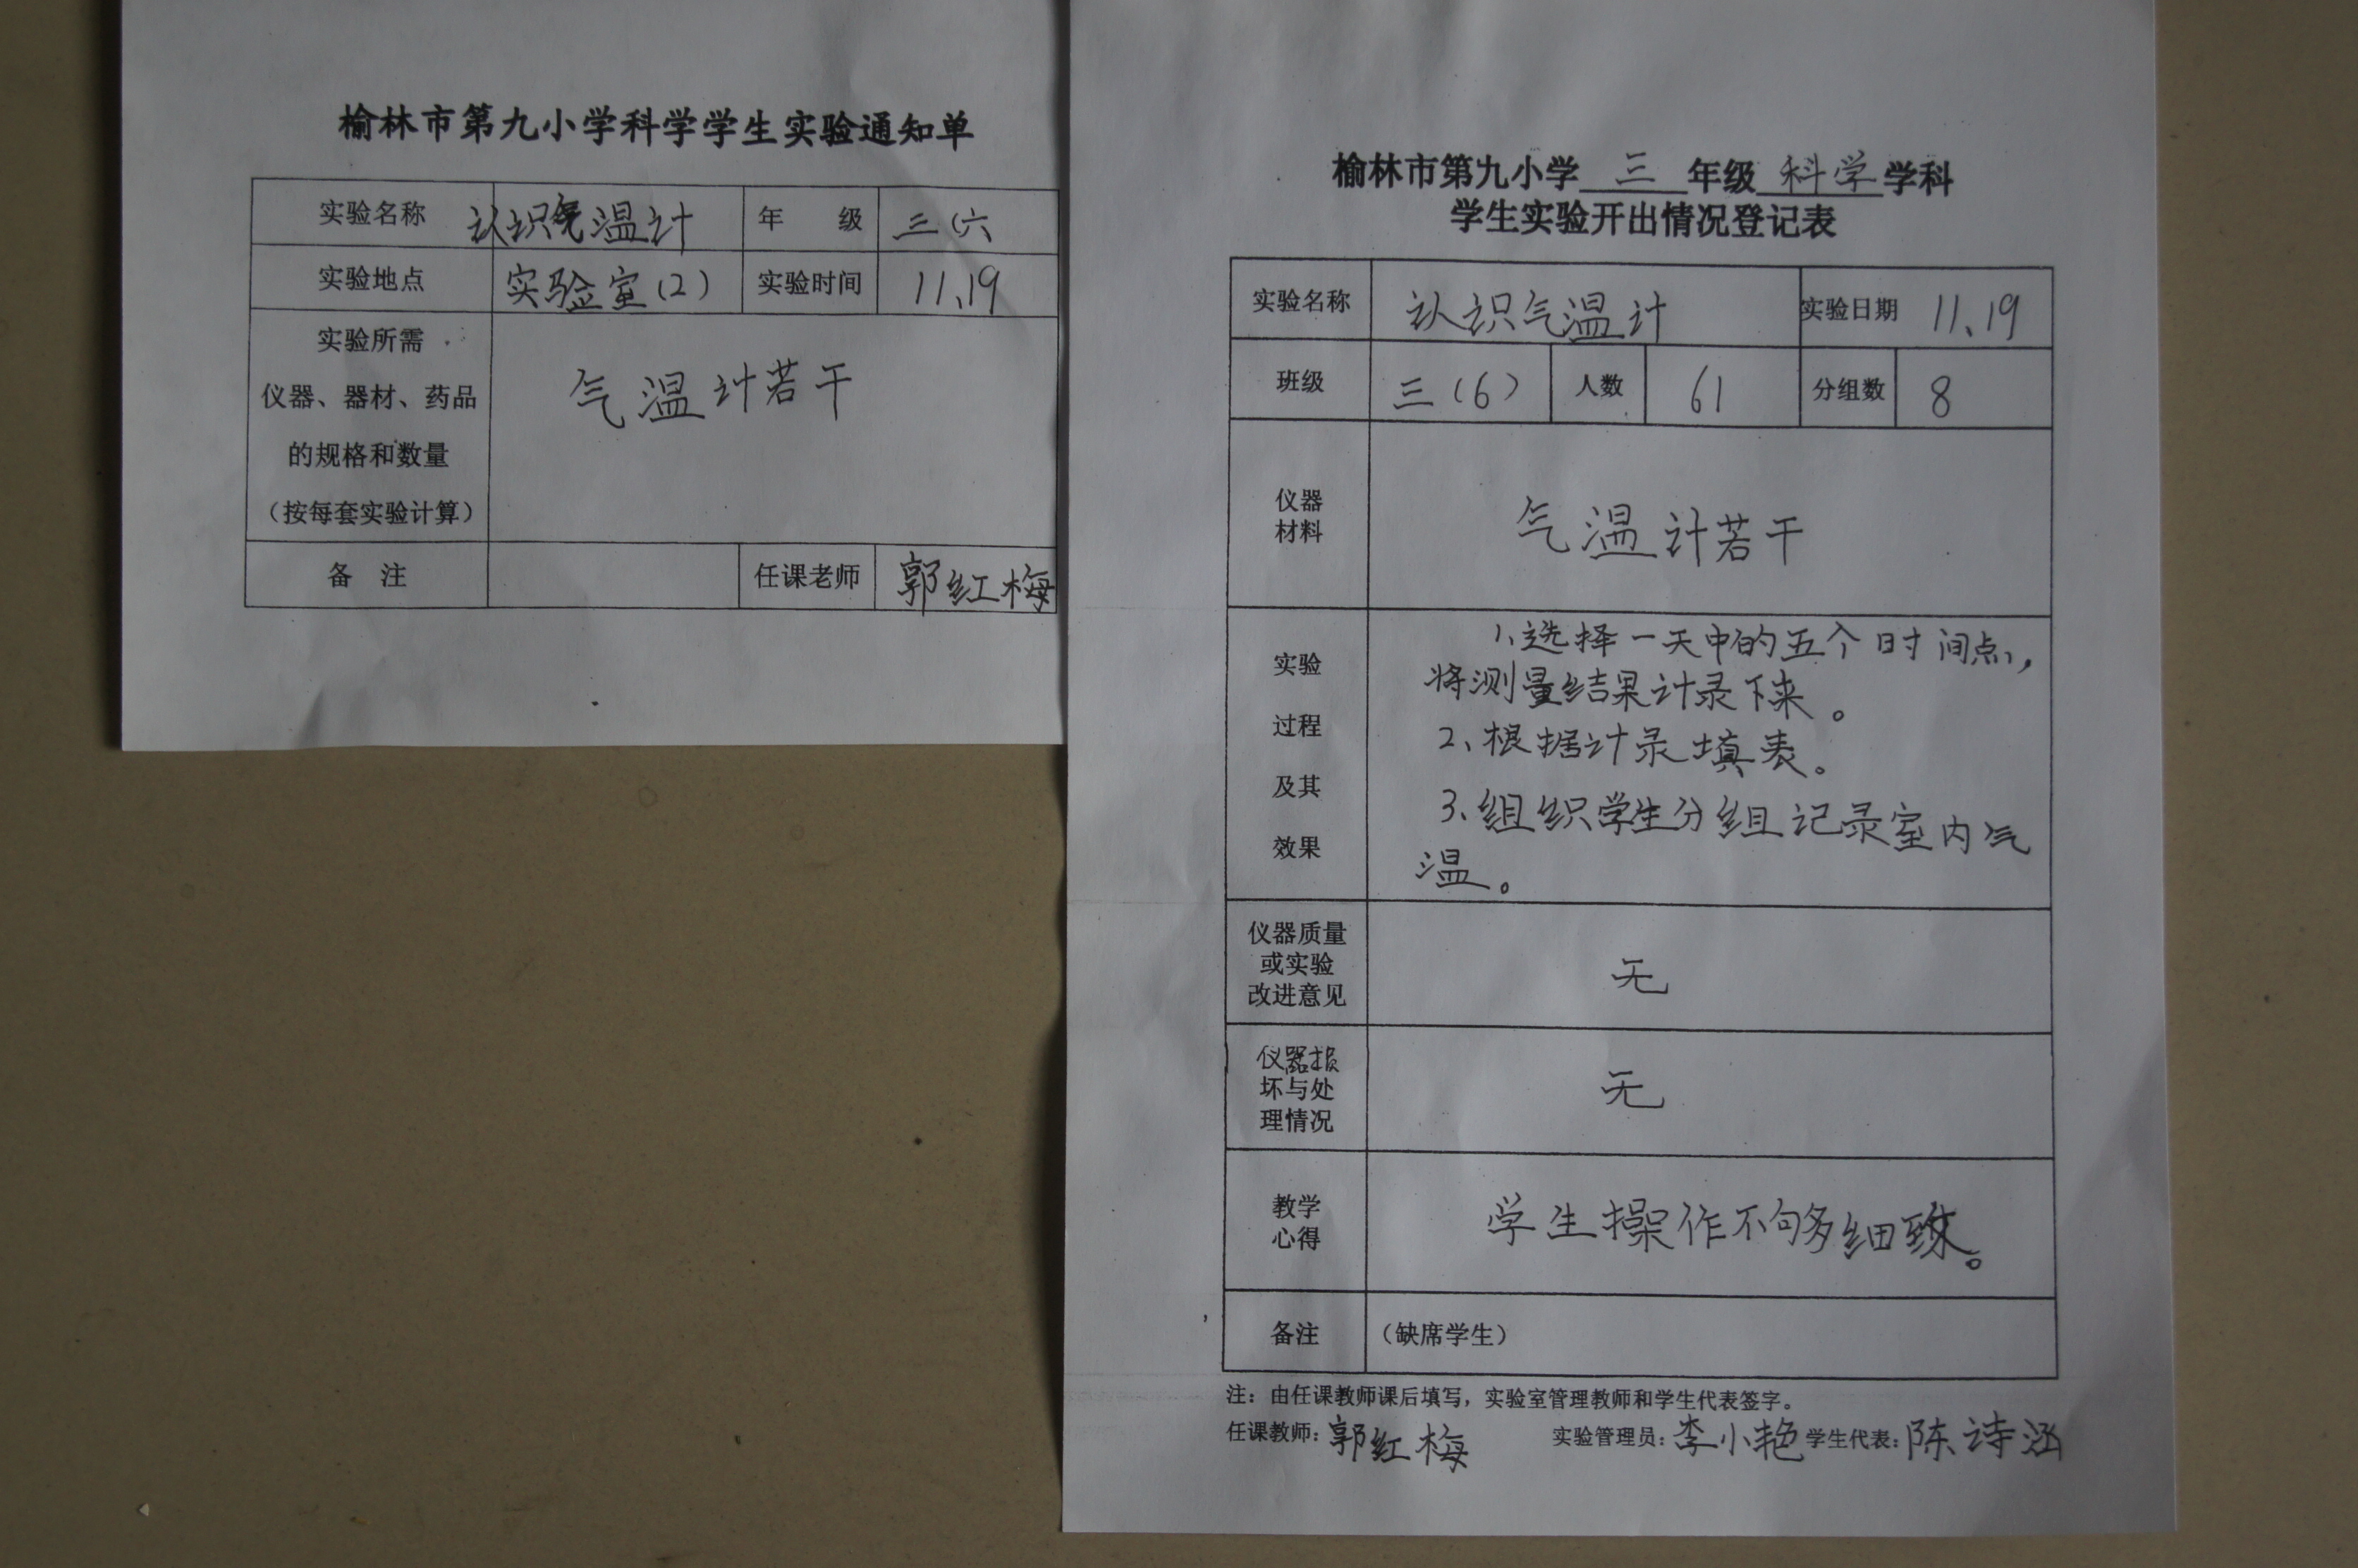 榆林市第九小学科学学生实验通知单
实验名称 认识气温计 年 级 三(六
实验地点 实验室(2) 实验时间 11、19
实验所需
仪器、器材、药品
的规格和数量
(按每套实验计算)
气温计若干
备 注 任课老师 郭红梅
榆林市第九小学 三 年级 科学 学科
学生实验开出情况登记表
实验名称 认识气温计 实验日期 11、19
班级 三(6) 人数 61 分组数 8
仪器
材料
气温计若干
实验
过程
及其
效果
1、选择一天中的五个时间点,
将测量结果计录下来。
2、根据计录填表。
3、组织学生分组记录室内气
温。
仪器质量
或实验
改进意见
无
仪器损
坏与处
理情况
无
教学
心得
学生操作不够细致。
备注 (缺席学生)
注:由任课教师课后填写,实验室管理教师和学生代表签字。
任课教师:郭红梅 实验管理员:李小艳 学生代表:陈诗涵